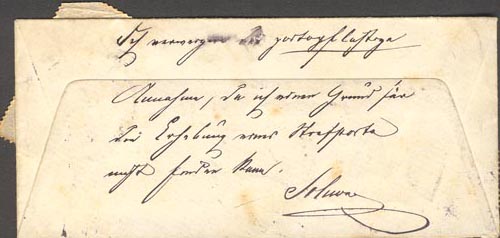 Ich verweigere die portopflichtige
Annahme, da ich einen Grund für
die Erhebung eines Strafporto
nicht finden kann.